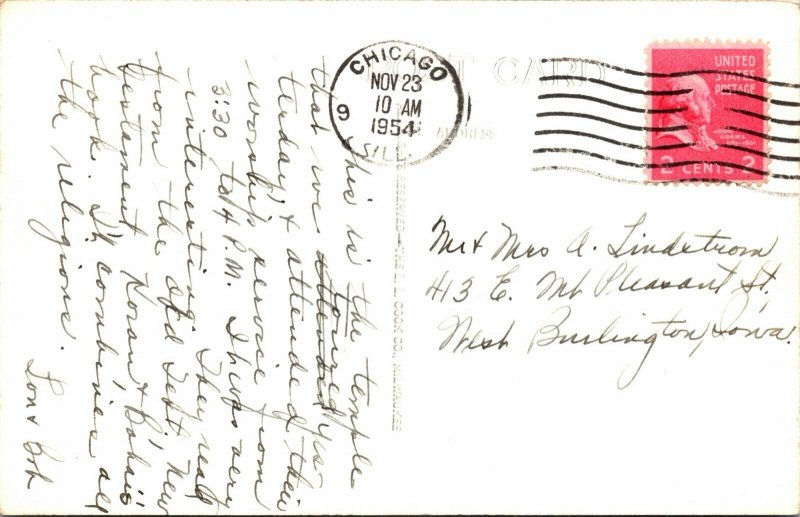 This is the temple
that we attended toured yes-
terday, & attended their
worship service from
3:30 to 4 P.M. It was very
interesting. They read
from the Old Test. New
Testament Koran & Bahá'i
book. It combines all
the religions.
Lon &
POST CARD
ADDRESS
CHICAGO
NOV 23
10 AM
1954
ILL.
9
UNITED
STATES
POSTAGE
JOHN
ADAMS
2 CENTS 2
Mr & Mrs A. Lindstrom
413 E. Mt Pleasant St,
West Burlington, Iowa.
COOK CO., MILWAUKEE